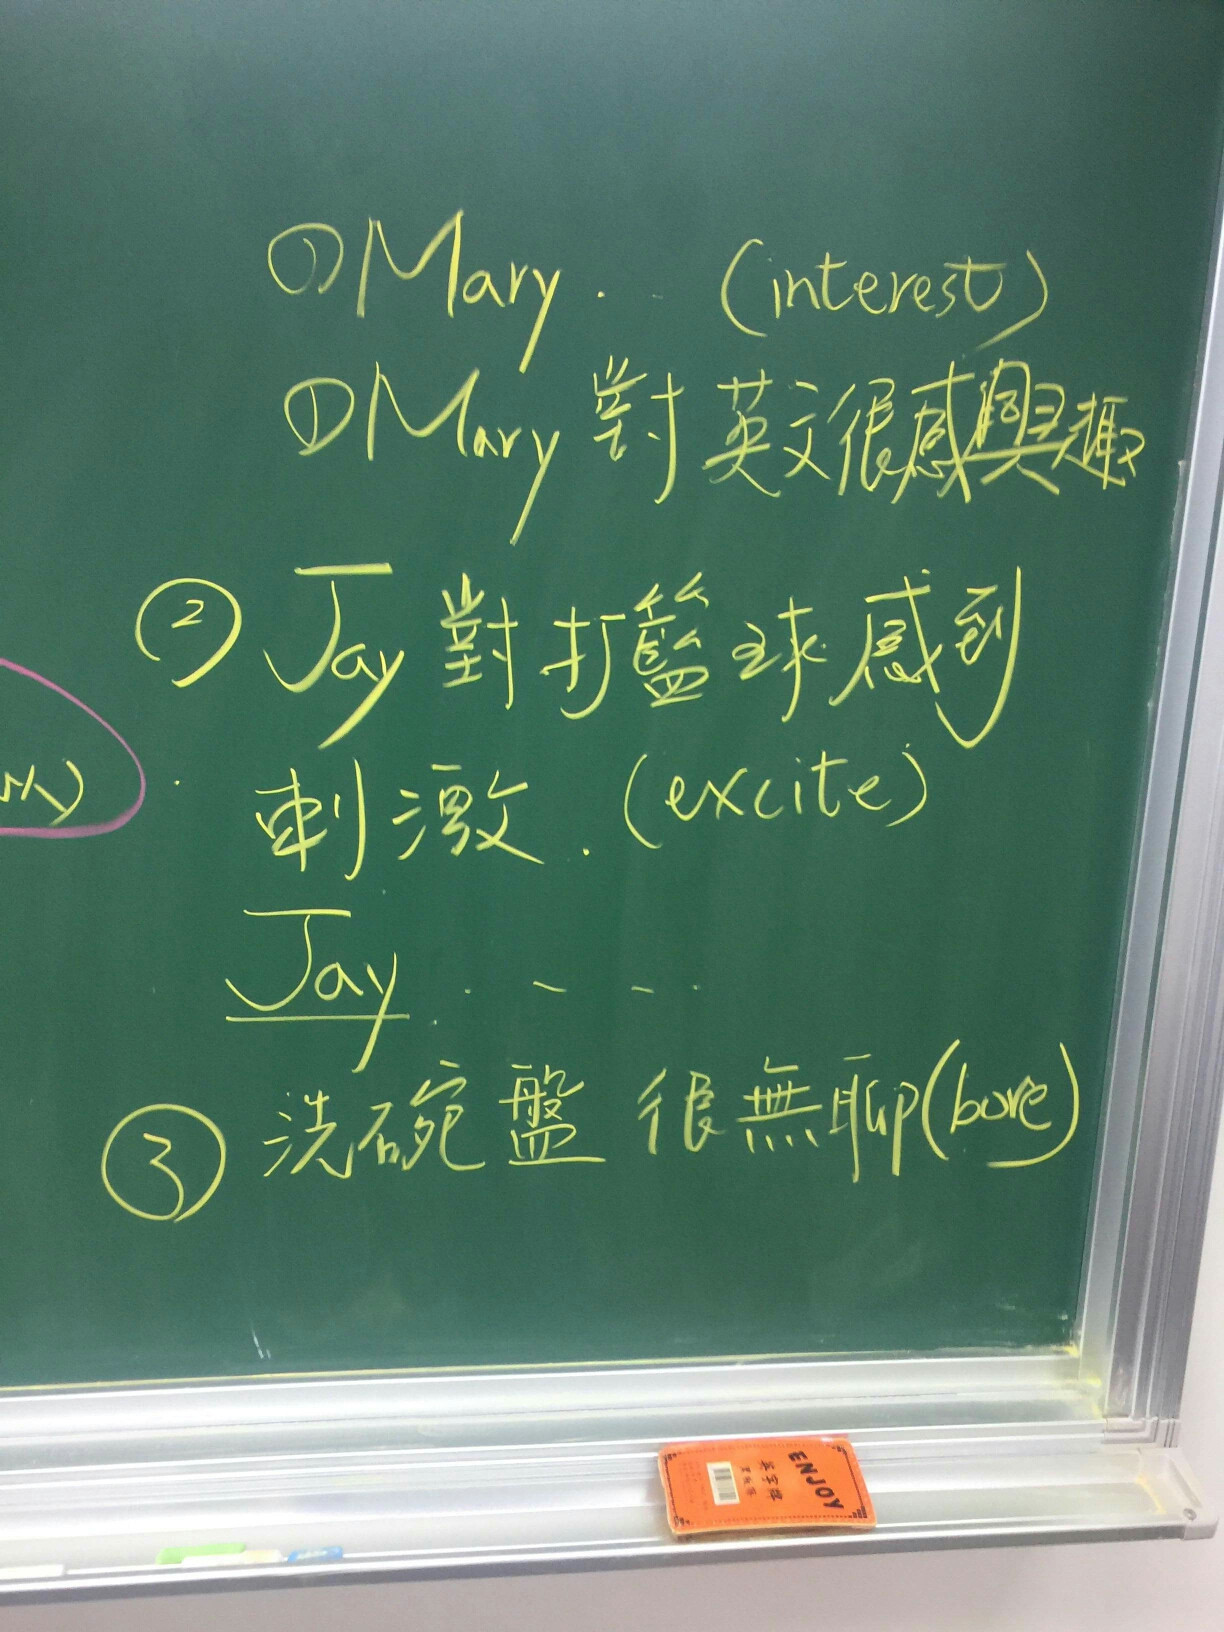 ① Mary . . (interest)
① Mary 對英文很感興趣
② Jay 對打籃球感到
刺激 . (excite)
Jay . . . . .
③ 洗碗盤 很無聊 (bore)
ENJOY